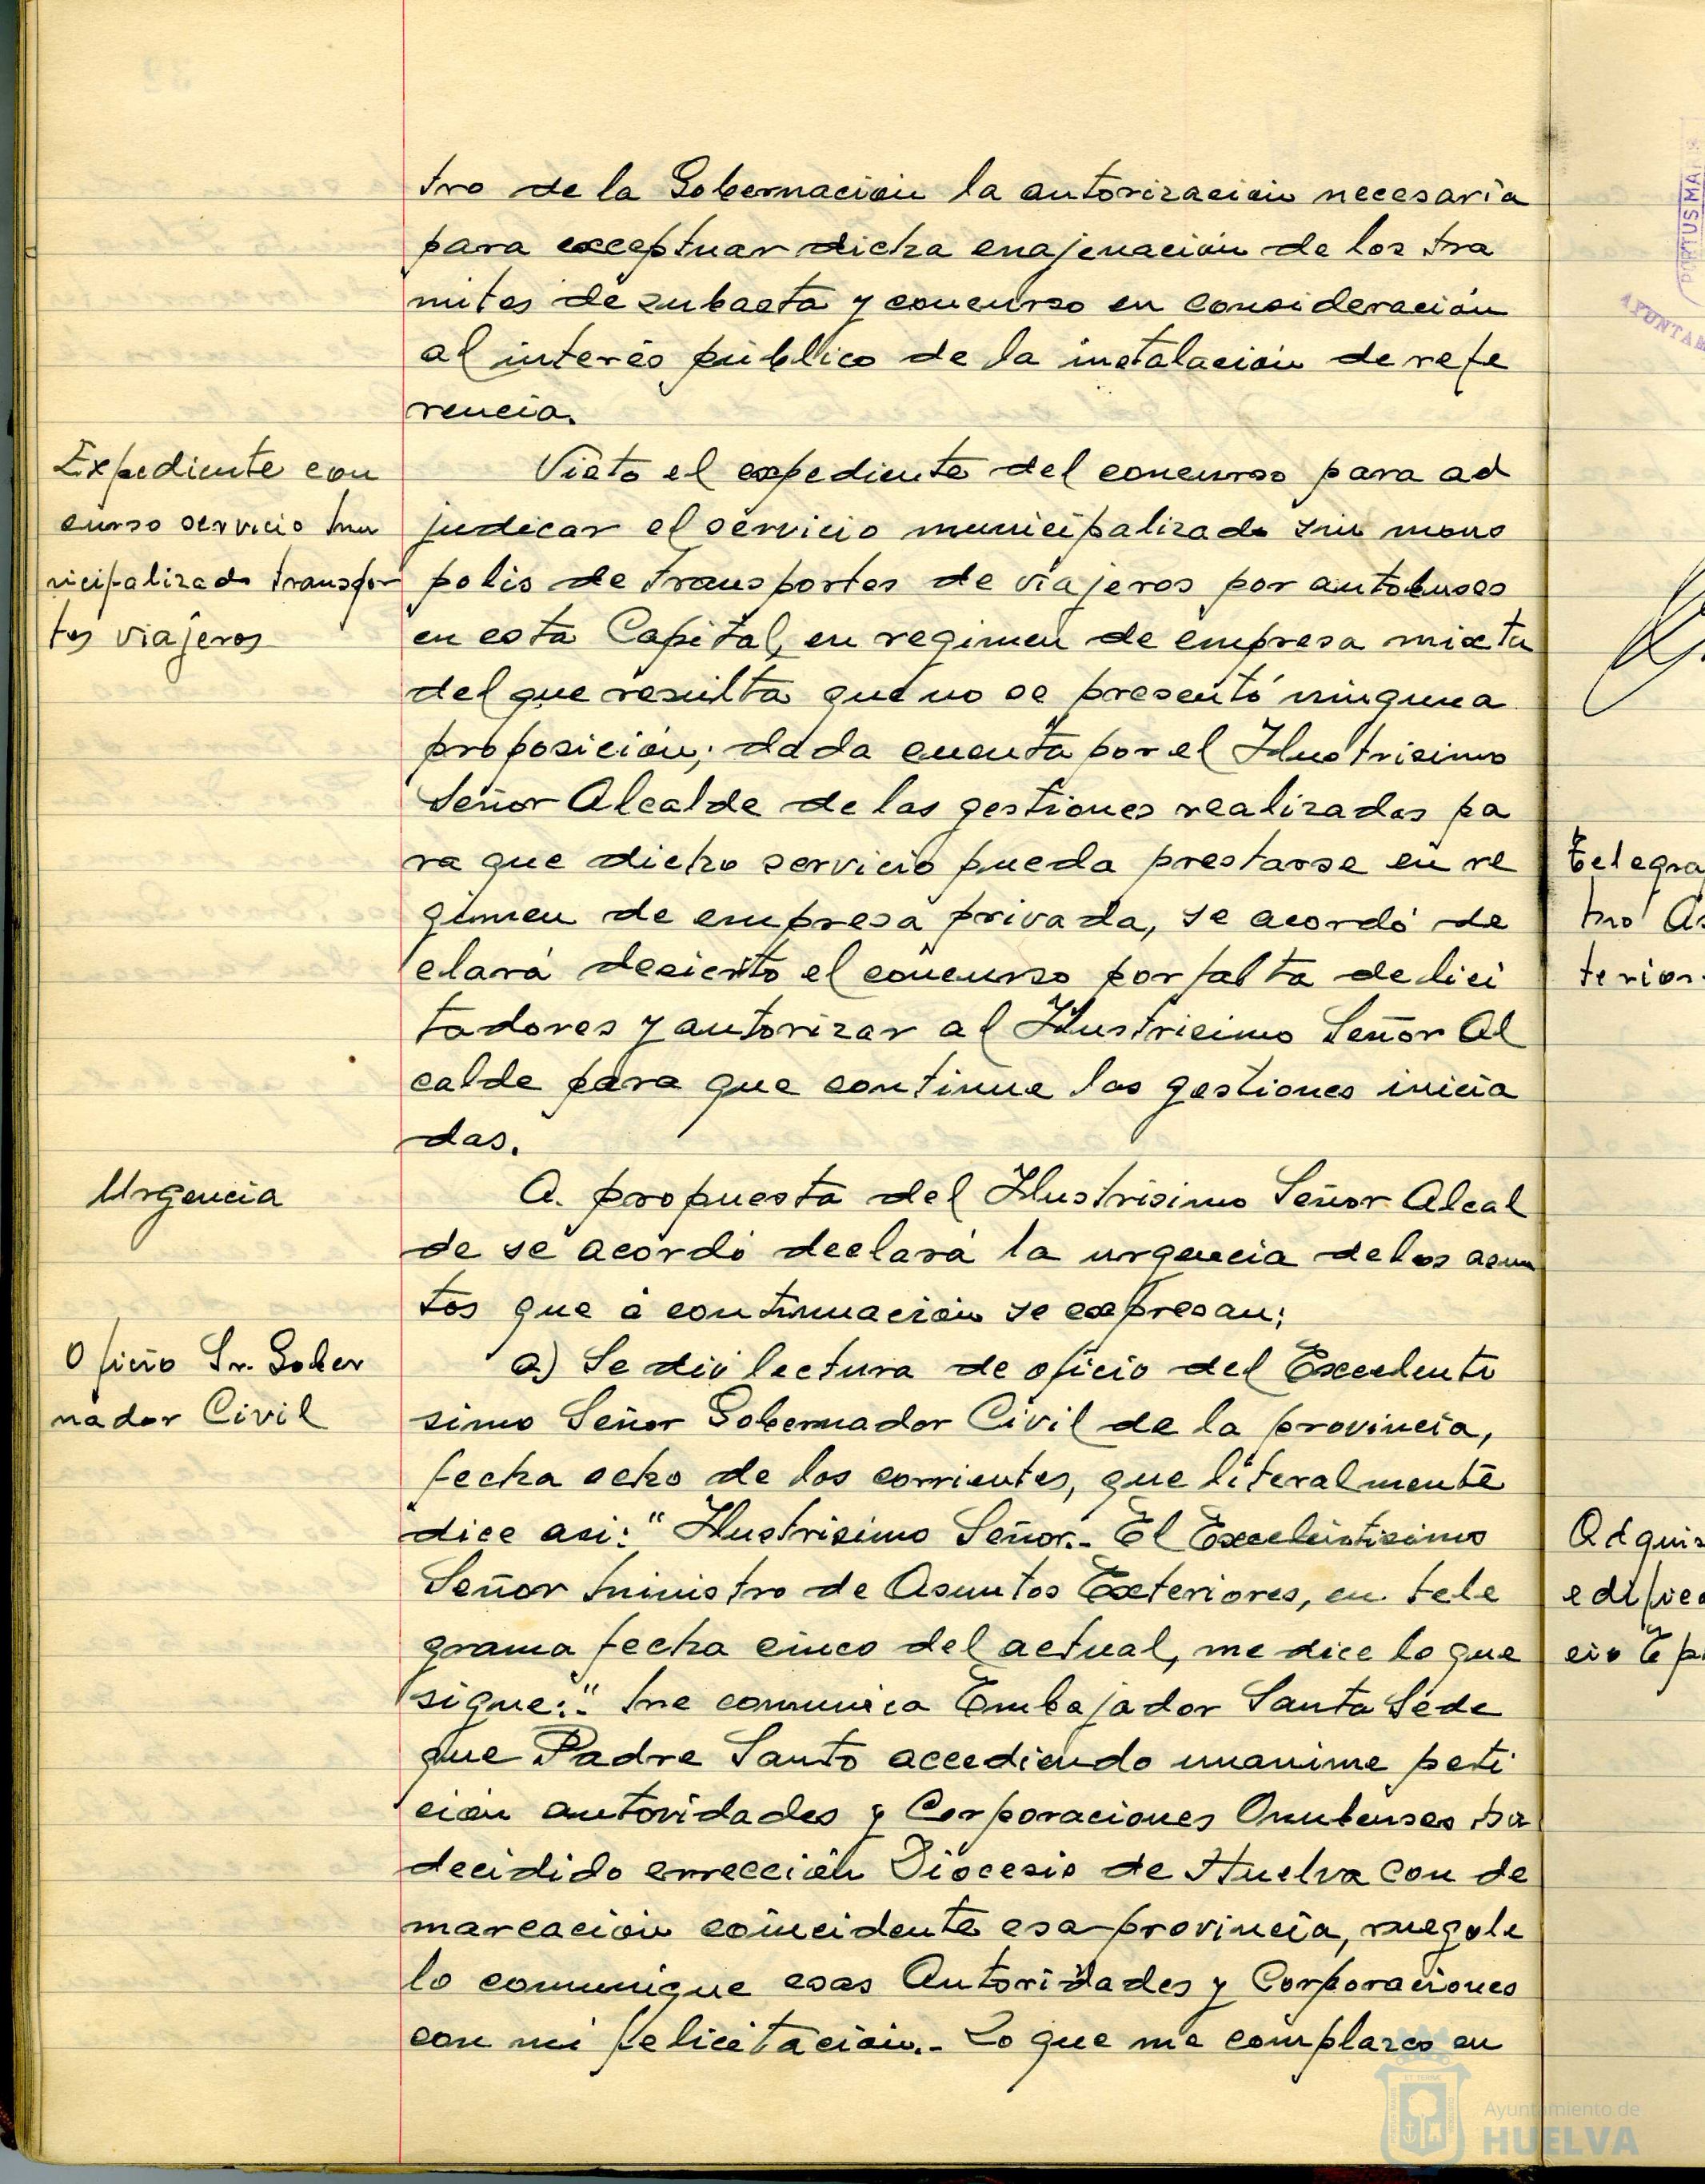 tro de la Gobernación la autorización necesaria
para exceptuar dicha enajenación de los tra
mites de subasta y concurso en consideración
al interés público de la instalación de refe
rencia.
Expediente con
curso servicio mu
nicipalizado transpor
tes viajeros
Visto el expediente del concurso para ad
judicar el servicio municipalizado sin mono
polis de transportes de viajeros por autobuses
en esta Capital, en regimen de empresa mixta
del que resulta que no se presentó ninguna
proposición; dada cuenta por el Ilustrisimo
Señor Alcalde de las gestiones realizadas pa
ra que dicho servicio pueda prestarse en re
gimen de empresa privada, se acordó de
clará desierto el concurso por falta de lici
tadores y autorizar al Ilustrisimo Señor Al
calde para que continue las gestiones inicia
das.
Urgencia
A propuesta del Ilustrisimo Señor Alcal
de se acordó declará la urgencia de los asun
tos que á continuación se expresan:
Oficio Sr. Gober
nador Civil
a) Se dió lectura de oficio del Excelenti
simo Señor Gobernador Civil de la provincia,
fecha ocho de los corrientes, que literalmente
dice asi: "Ilustrisimo Señor.- El Excelentisimo
Señor Ministro de Asuntos Exteriores, en tele
grama fecha cinco del actual, me dice lo que
sigue: "Me comunica Embajador Santa Sede
que Padre Santo accediendo unanime peti
ción autoridades y Corporaciones Onubenses ha
decidido errección Diócesis de Huelva con de
marcación coincidente esa provincia, ruegole
lo comunique esas Autoridades y Corporaciones
con mi felicitación.- Lo que me complazco en
PORTUS MARIS
AYUNTAM
Telegra
mo As
terior
Adquis
edific
cio Ep
Ayuntamiento de
HUELVA